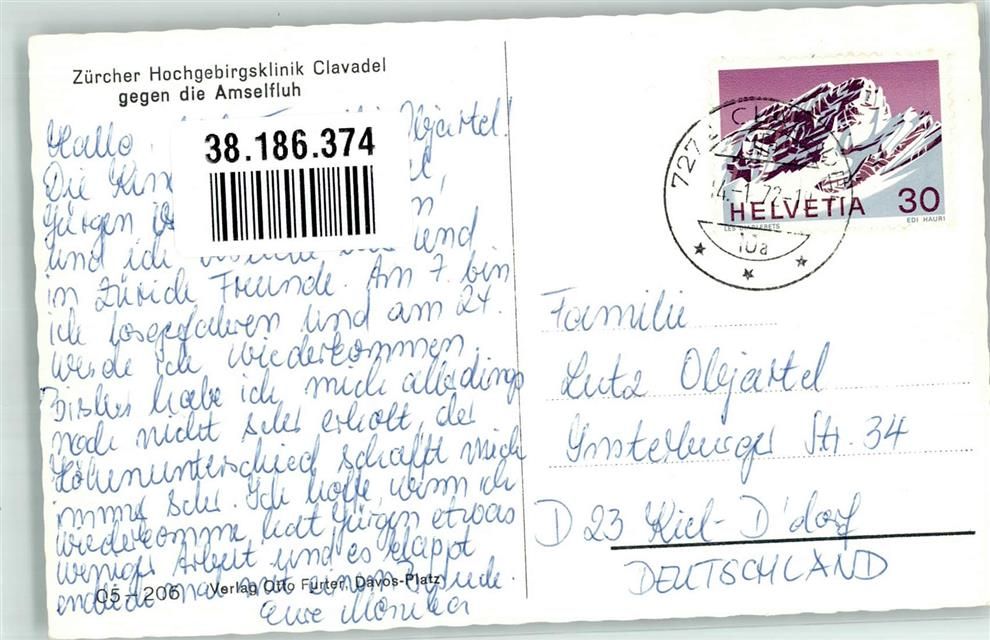 Zürcher Hochgebirgsklinik Clavadel
gegen die Amselfluh
Hallo
38.186.374
Die
Jürgen
und ich und
in Zürich Freunde. Am 7. bin
ich losgefahren und am 24.
werde ich wiederkommen.
Bisher habe ich mich allerdings
noch nicht sehr erholt, der
Höhenunterschied schafft mich
immer sehr. Ich hoffe, wenn ich
wiederkomme, hat Jürgen etwas
weniger Arbeit und es klappt
endlich mal mit
Eure Monika
05-206 Verlag Otto Furter, Davos-Platz
HELVETIA 30
LES DIABLERETS
EDI HAURI
10a
Familie
Lutz Olejartel
Insterburger Str. 34
D 23 Kiel-D'dorf
DEUTSCHLAND